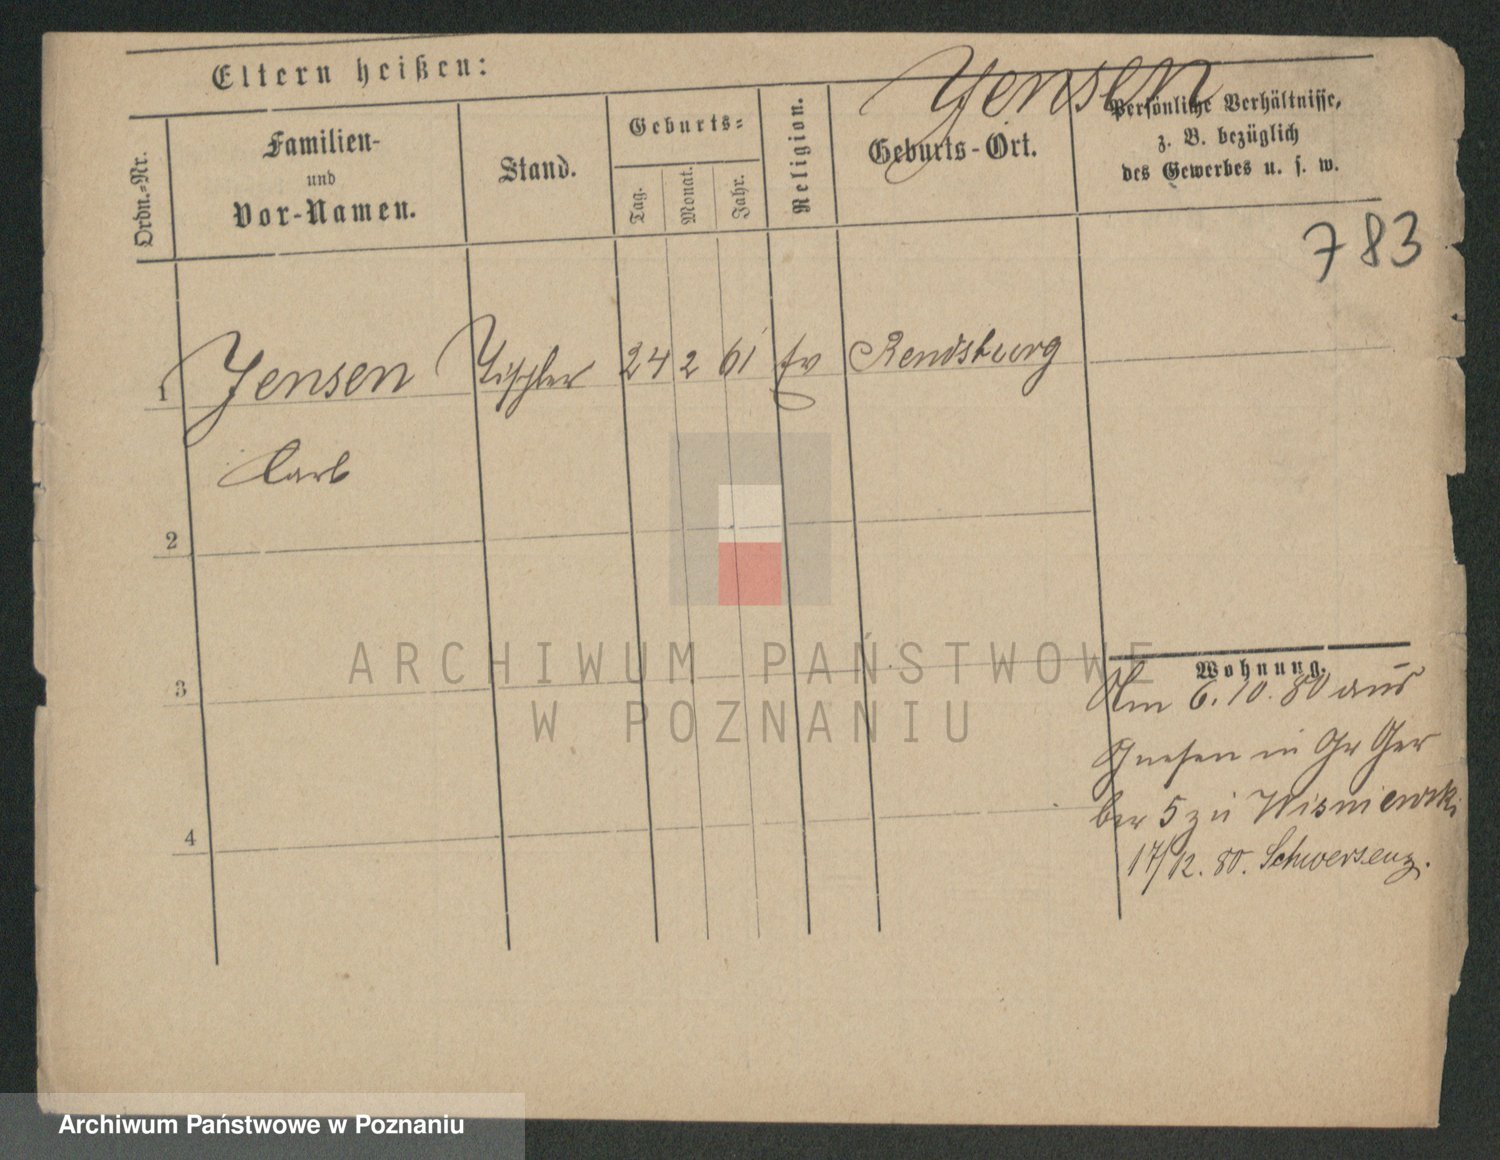 Eltern heißen:
Jensen
Ordn.-Nr.
Familien-
und
Vor-Namen.
Stand.
Geburts-
Tag.
Monat.
Jahr.
Religion.
Geburts-Ort.
Persönliche Verhältnisse,
z. B. bezüglich
des Gewerbes u. s. w.
783
1 Jensen Tischler 24 2 61 Ev Rendsburg
Carl
2
3
4
Wohnung.
Am 6.10.80 aus
Gnesen in Gr Ger
ber 5 zu Wisniewski
17/12. 80. Schwersenz.
ARCHIWUM PAŃSTWOWE
W POZNANIU
Archiwum Państwowe w Poznaniu